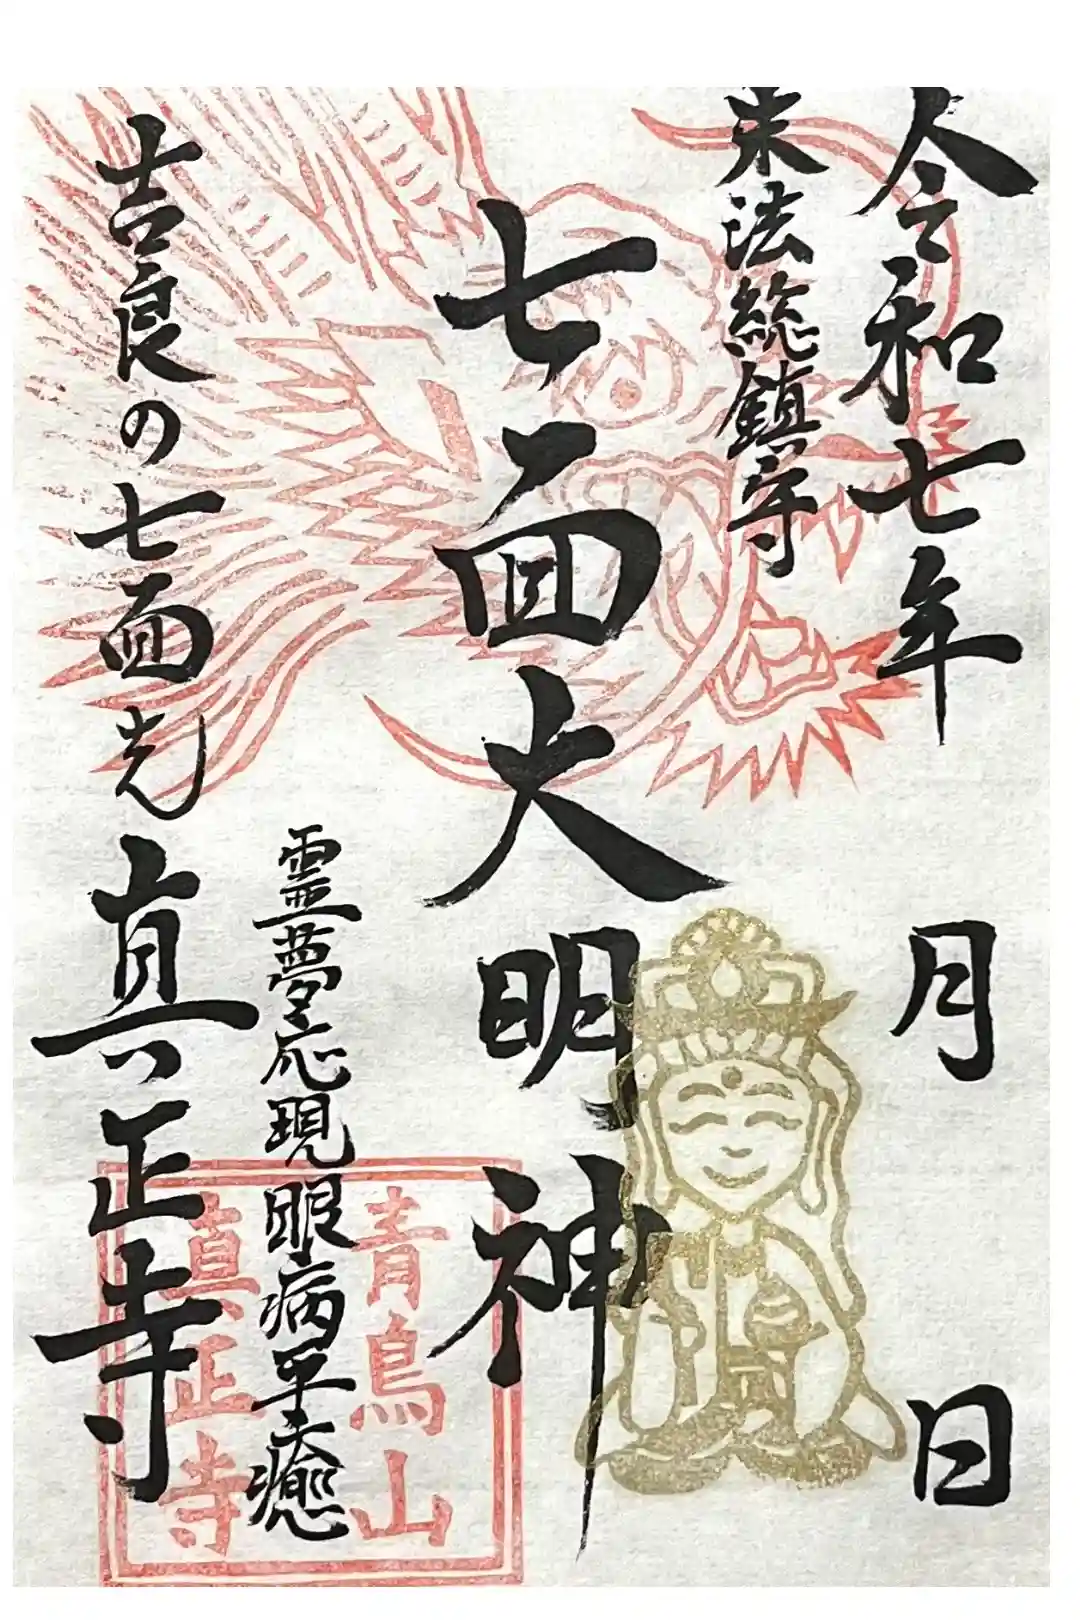 令和七年 月 日
末法総鎮守
七面大明神
霊夢応現眼病早癒
吉良の七面さん
真正寺
青鳥山
真正寺